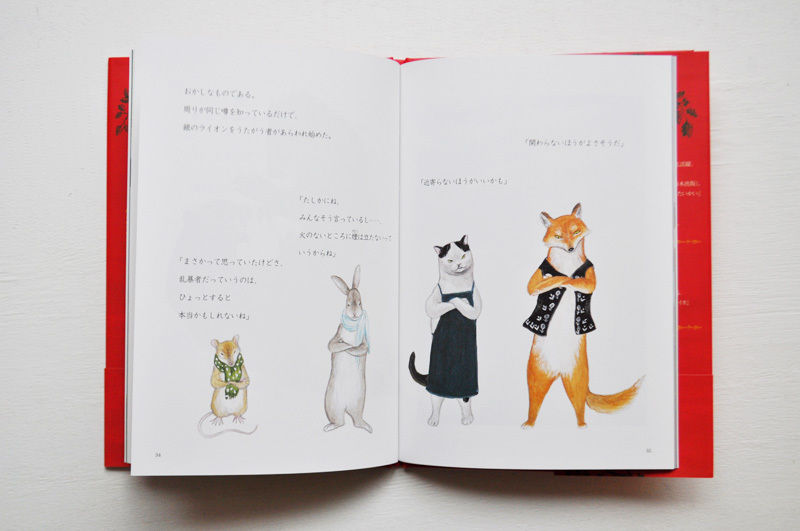 おかしなものである。
周りが同じ噂を知っているだけで、
銀のライオンをうたがう者があらわれ始めた。
「たしかにね、
みんなそう言っているし…、
火のないところに煙は立たないって
いうからね」
「まさかって思っていたけどさ、
乱暴者だっていうのは、
ひょっとすると
本当かもしれないね」
34
「関わらないほうがよさそうだ」
「近寄らないほうがいいかも」
35